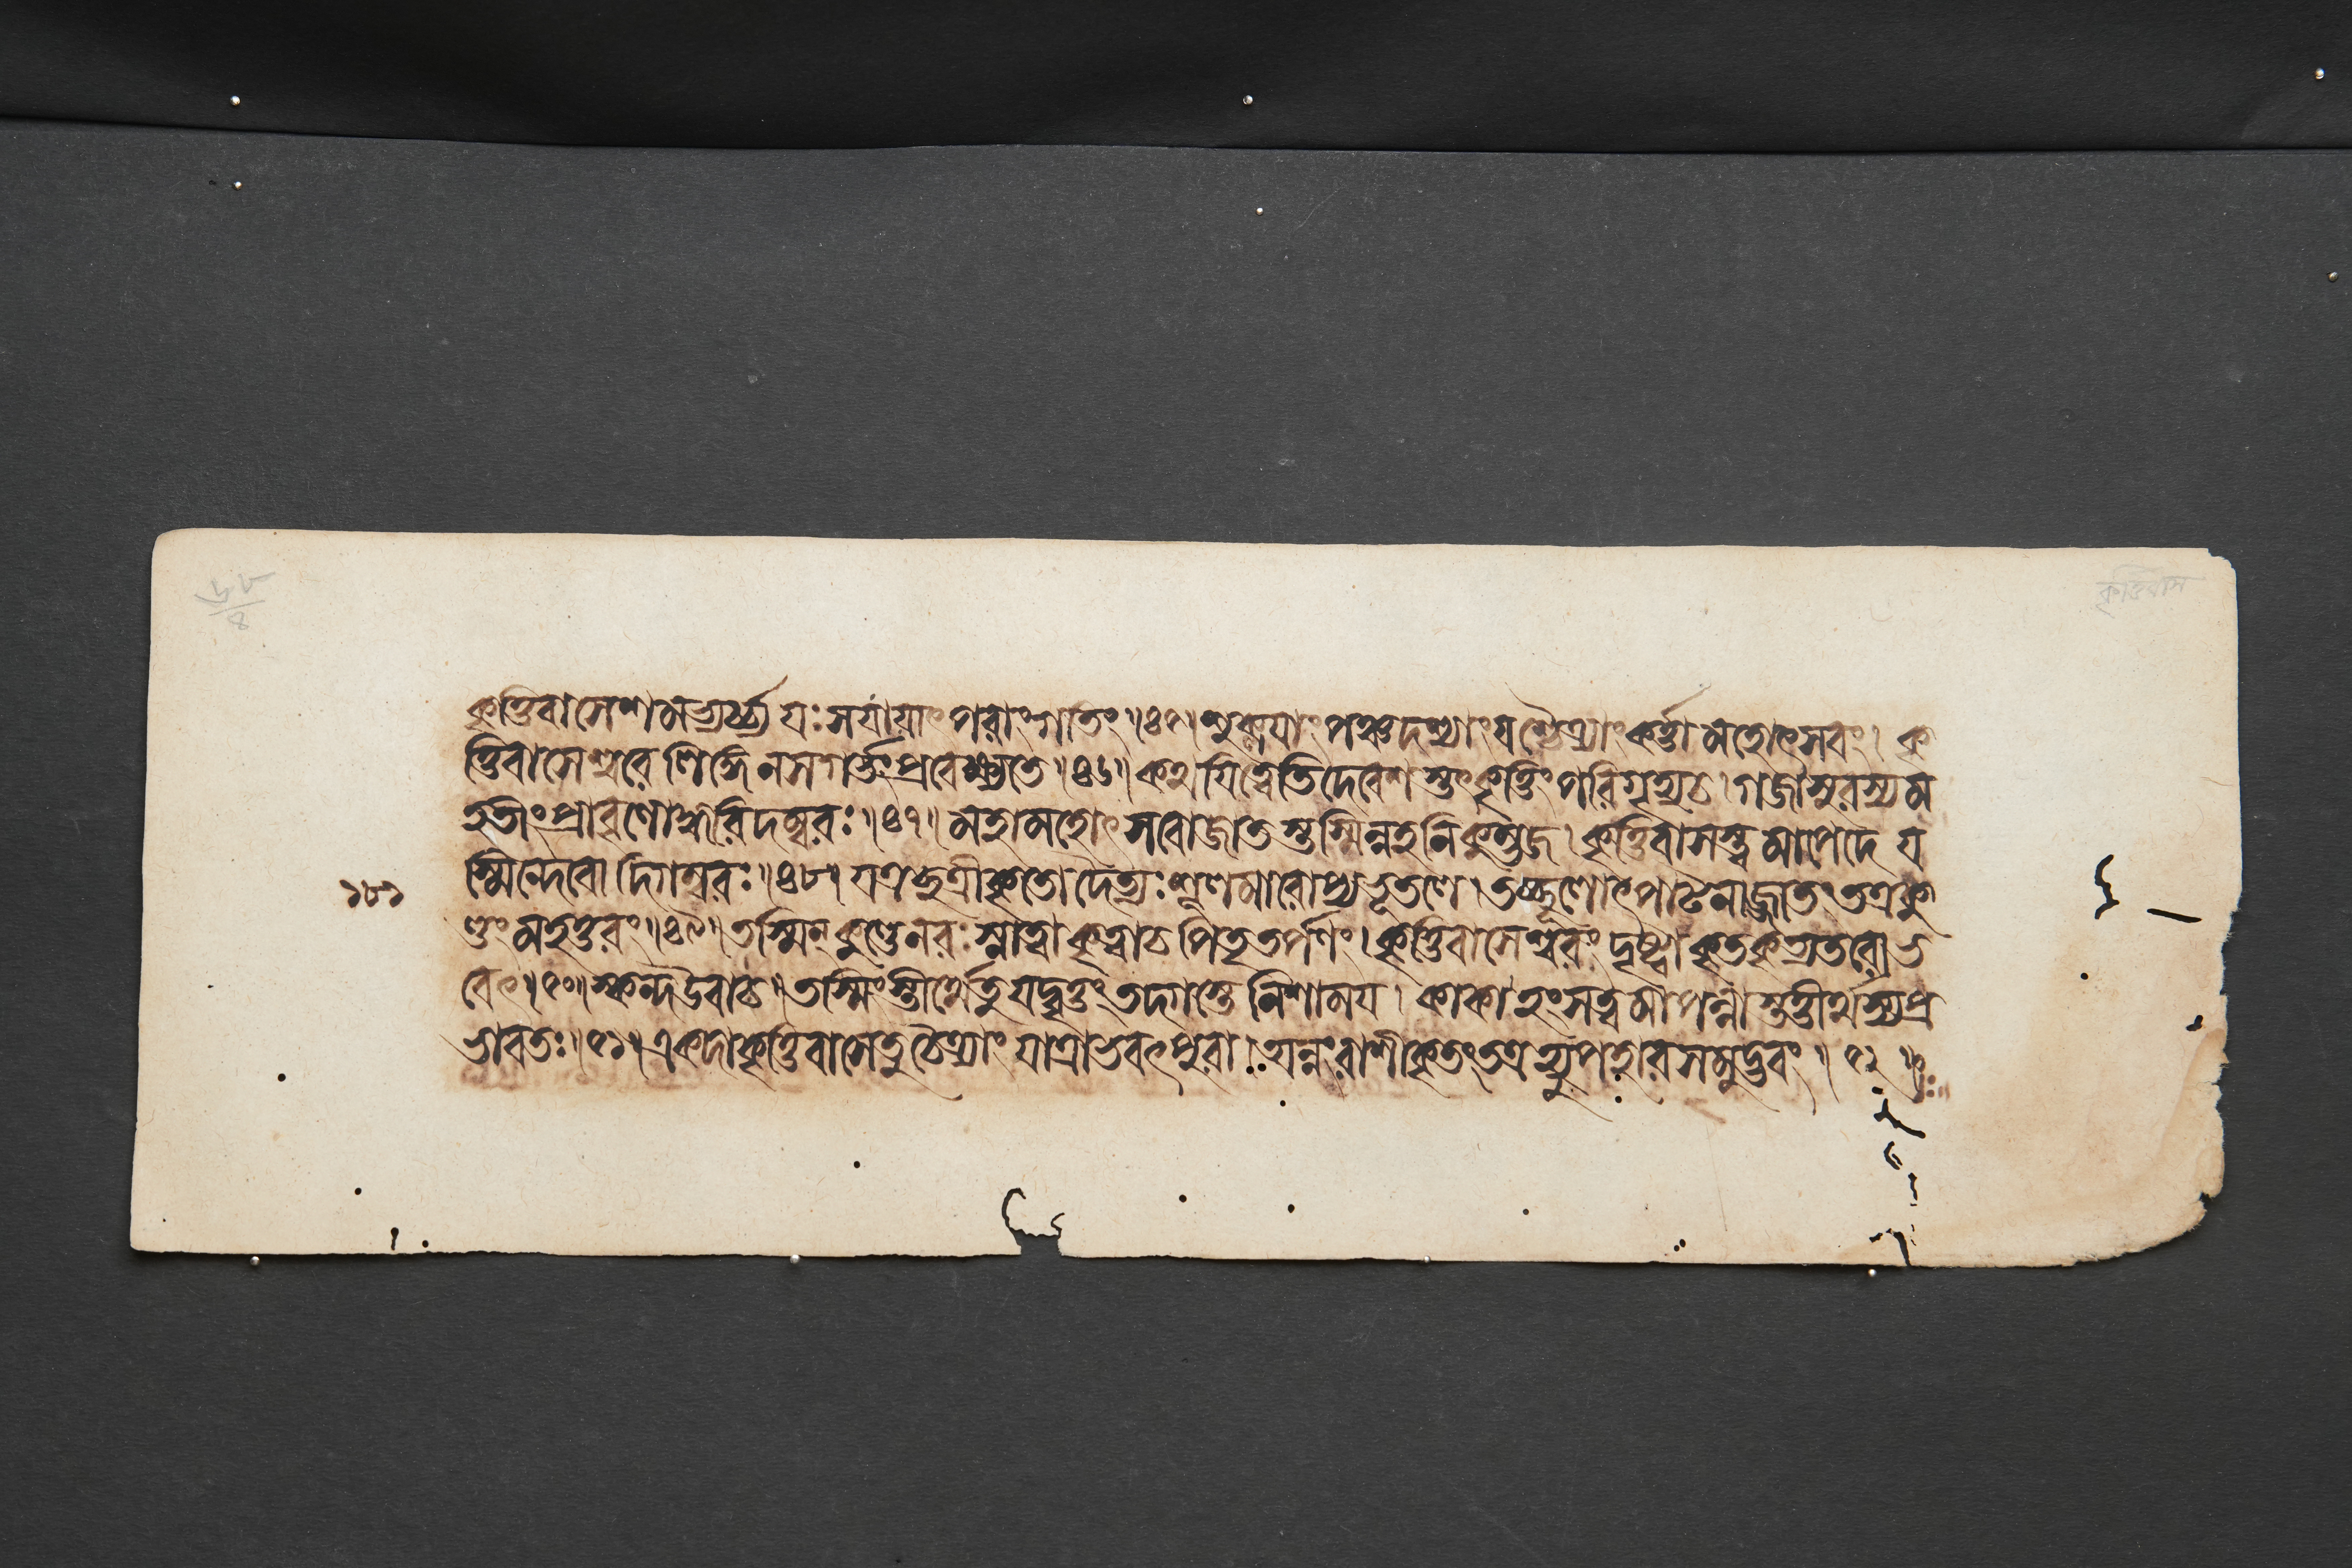 ৬৮/৪
কৃত্তিবাস
কৃত্তিবাসেশমভ্যর্চ্চ্য যঃ সযায়াৎ পরাংগতিং॥৪৫॥ শুক্লায়াং পঞ্চদশ্যাং যশ্চৈত্র্যাং কর্ত্তা মহোৎসবং। কৃ
ত্তিবাসেশ্বরে লিঙ্গে নসগর্ত্তং প্রবেক্ষ্যতে॥৪৬॥ কথযিত্বেতি দেবেশস্তৎকৃত্তিং পরিগৃহ্যচ। গজাসুরস্যম
হতীং প্রাবৃণোদ্ধরিদম্বরঃ॥৪৭॥ মহামহোৎসবোজাতস্তস্মিন্নহনিকুম্ভজ। কৃত্তিবাসস্ত্বমাপেদে য
স্মিন্দেবো দিগম্বরঃ॥৪৮॥ যত্রচ্ছত্রীকৃতো দৈত্যঃ শূলমারোপ্যভূতলে। তচ্ছূলোৎপাটনাজ্জাতং তত্রকু
১৮১
ণ্ডং মহত্তরং॥৪৯॥ তস্মিন্ কুণ্ডে নরঃ স্নাত্বা কৃত্বাচ পিতৃতর্পণং। কৃত্তিবাসেশ্বরং দৃষ্ট্বা কৃতকৃত্যতরোভ
বেৎ॥৫০॥ স্কন্দউবাচ॥ তস্মিংস্তীর্থেতু যদ্বৃত্তং তদগস্তে নিশাময়। কাকা হংসত্বমাপন্নাস্তত্তীর্থস্যপ্র
ভাবতঃ॥৫১॥ একদা কৃত্তিবাসেতু চৈত্র্যাং যাত্রাভবৎপুরা। অন্নংরাশীকৃতং তত্রহ্যুপহারসমুদ্ভবং॥৫২॥